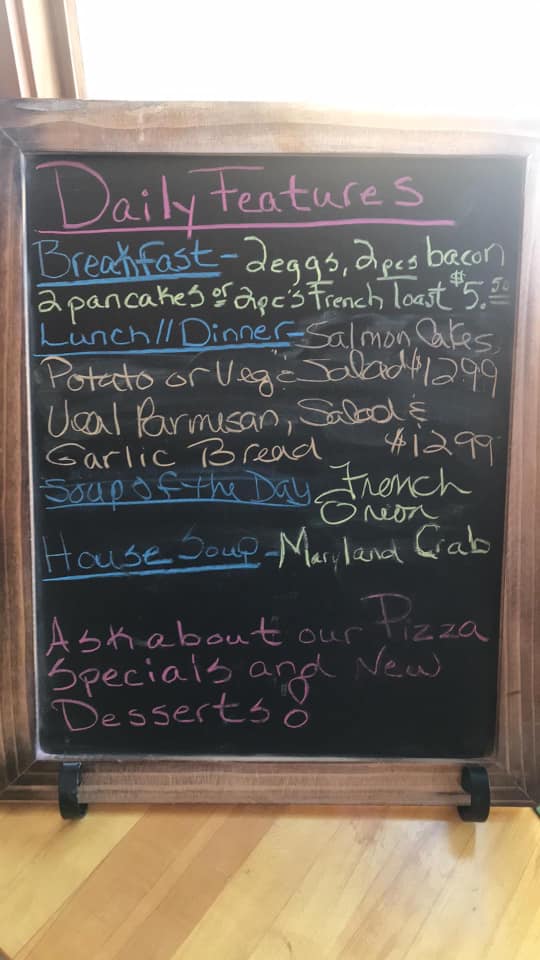 Daily Features
Breakfast - 2eggs, 2pcs bacon
2 pancakes or 2pc's French Toast $5.50
Lunch // Dinner - Salmon Cakes,
Potato or Veg & Salad $12.99
Veal Parmesan, Salad &
Garlic Bread $12.99
Soup of the Day French
Onion
House Soup - Maryland Crab
Ask about our Pizza
Specials and New
Desserts!